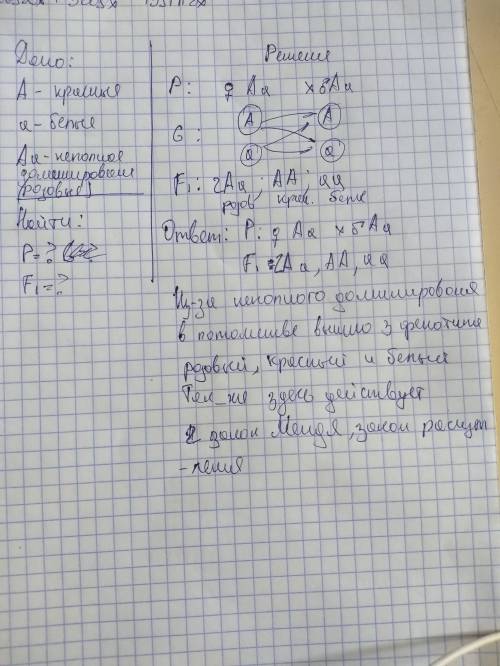 Дано:
А - красные
а - белые
Аа - неполное
доминирование
(розовые)
Найти:
P = ?
F₁ = ?
Решение
P: ♀ Аа х ♂ Аа
G: А А
а а
F₁: 2Аа ; АА ; аа
розов красн. белые
Ответ: P: ♀ Аа х ♂ Аа
F₁ = 2Аа, АА, аа
Из-за неполного доминирования
в потомстве вышло 3 фенотипа
розовый, красный и белый
Так-же здесь действует
2 закон Менделя, закон расщеп
-ления